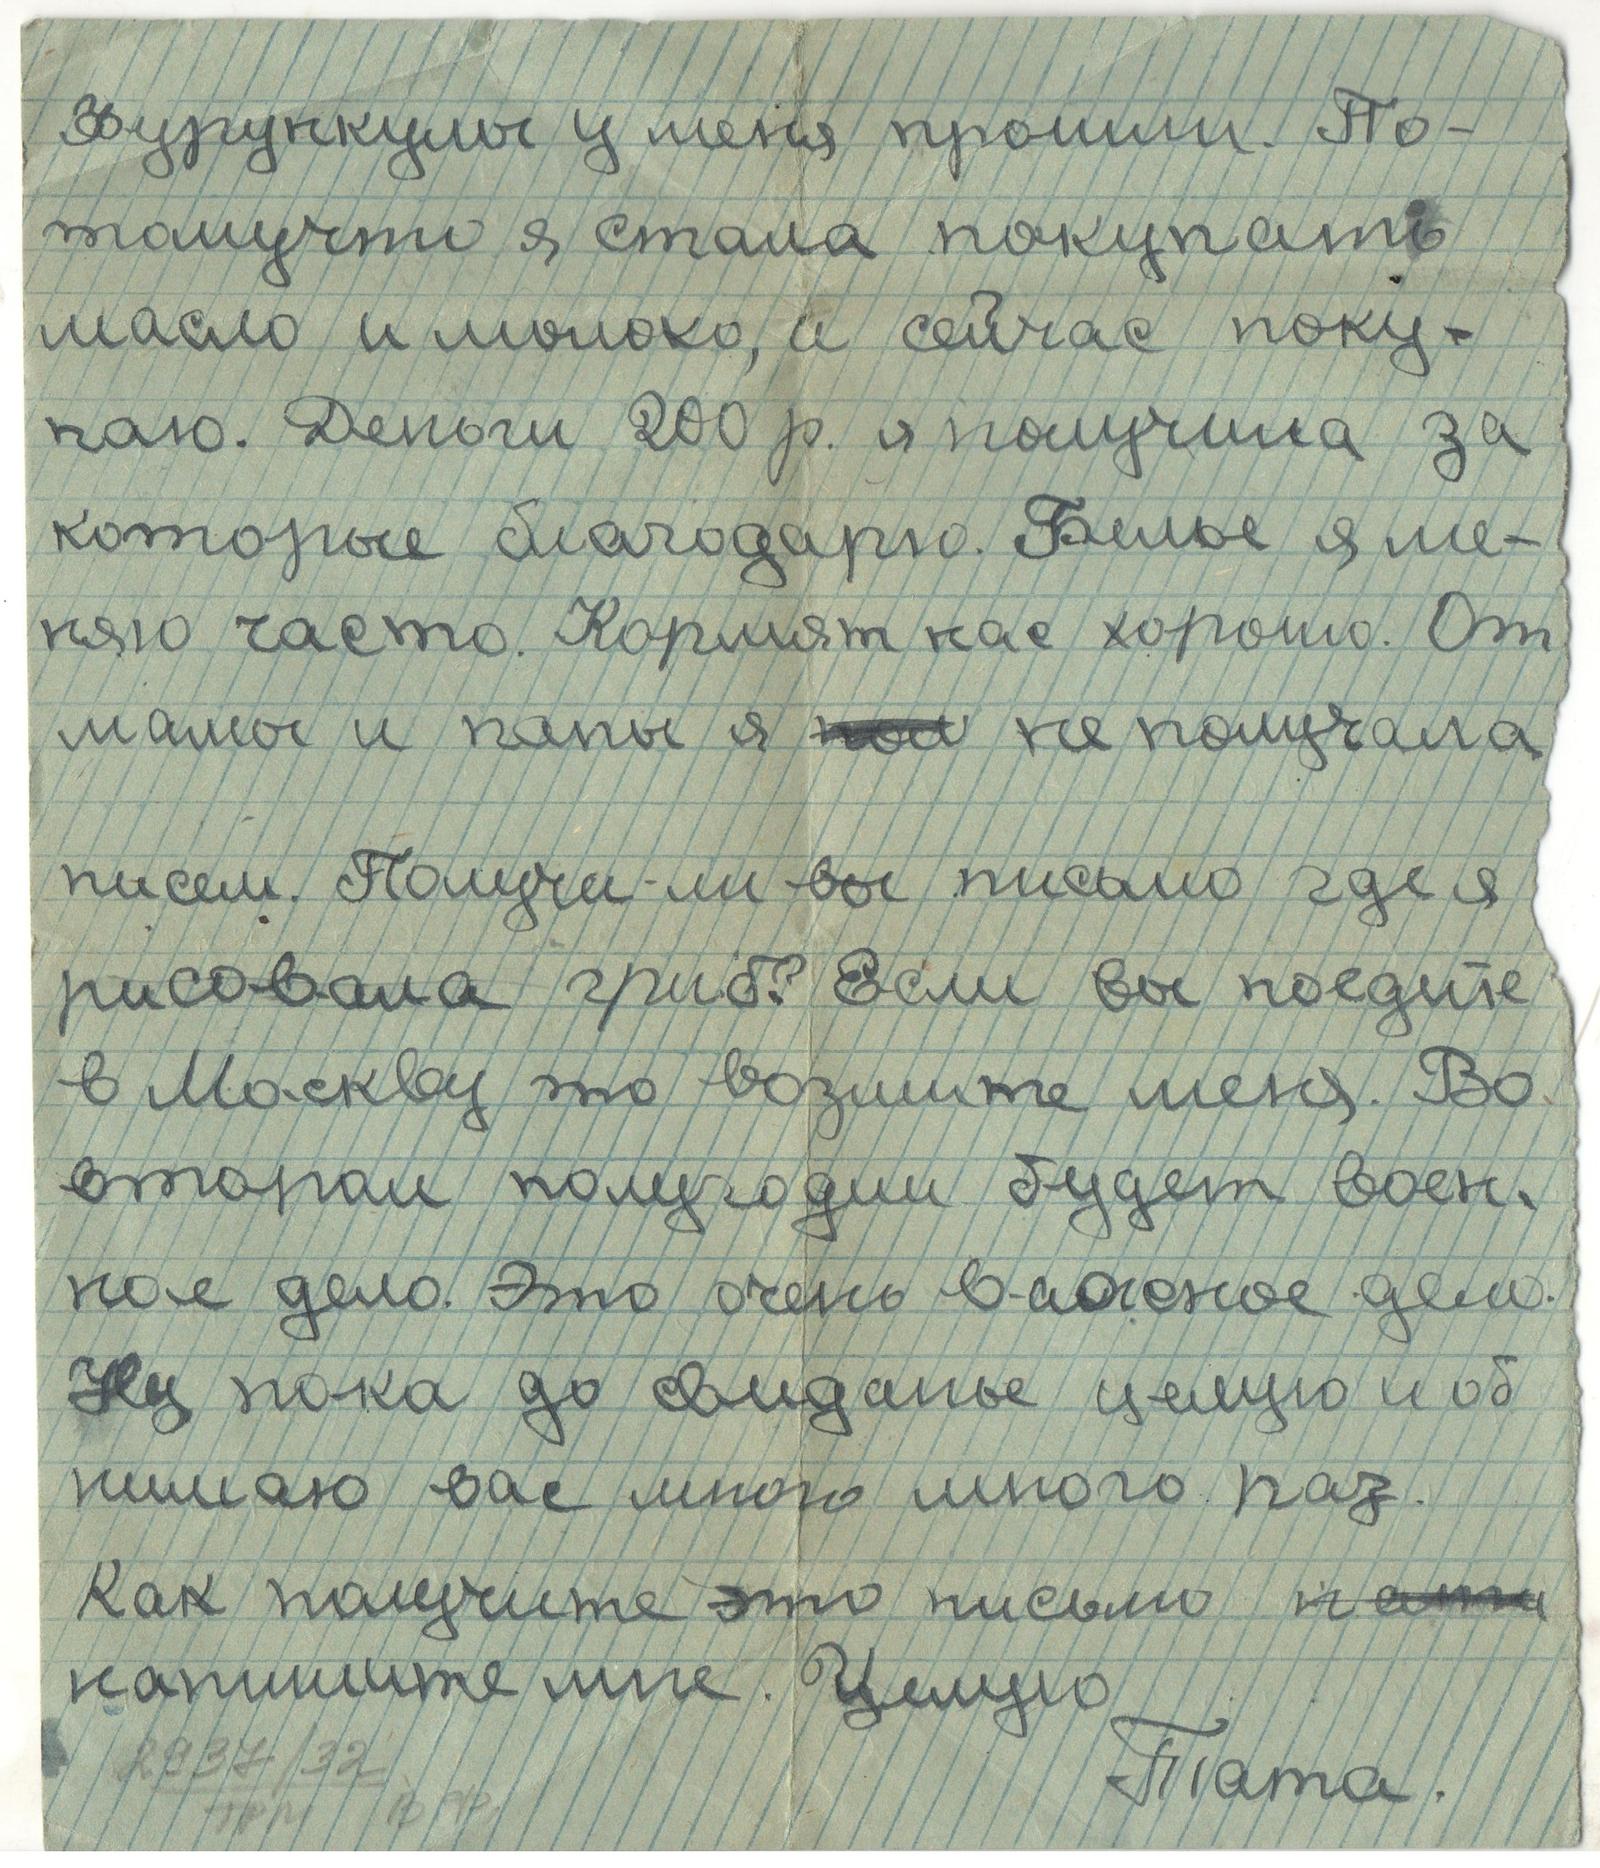 Фурункулы у меня прошли. По-
томучто я стала покупать
масло и молоко, и сейчас поку-
паю. Деньги 200 р. я получила за
которые благодарю. Белье я ме-
няю часто. Кормят нас хорошо. От
мамы и папы я не получала
писем. Получи-ли вы письмо где я
рисовала гриб? Если вы поедите
в Москву то возмите меня. Во
втором полугодии будет воен-
ное дело. Это очень важное дело.
Ну пока до свиданье целую и об
нимаю вас много много раз.
Как получите это письмо
напишите мне. Целую
Тата.
2937/32